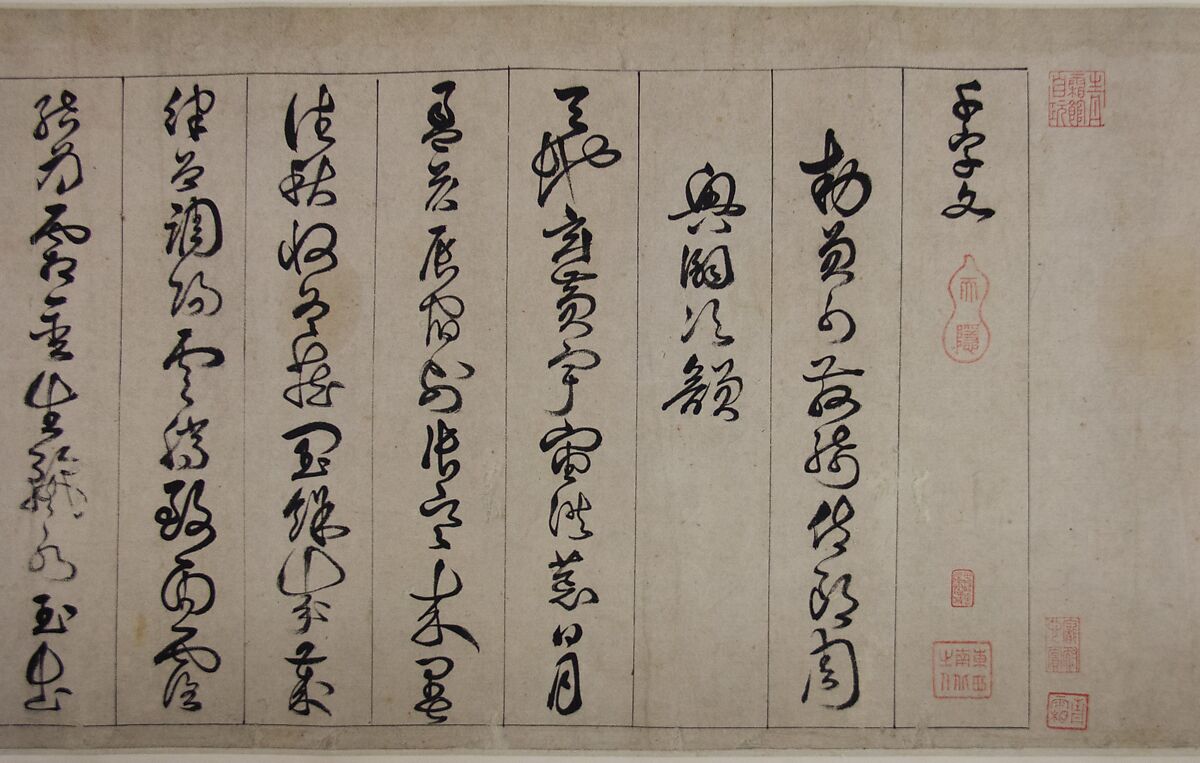 千字文
敕員外散騎侍郎周
興嗣次韻
天地玄黃宇宙洪荒日月
盈昃辰宿列張寒來暑
往秋收冬藏閏餘成歲
律呂調陽雲騰致雨露
結為霜金生麗水玉出
東西南北之人